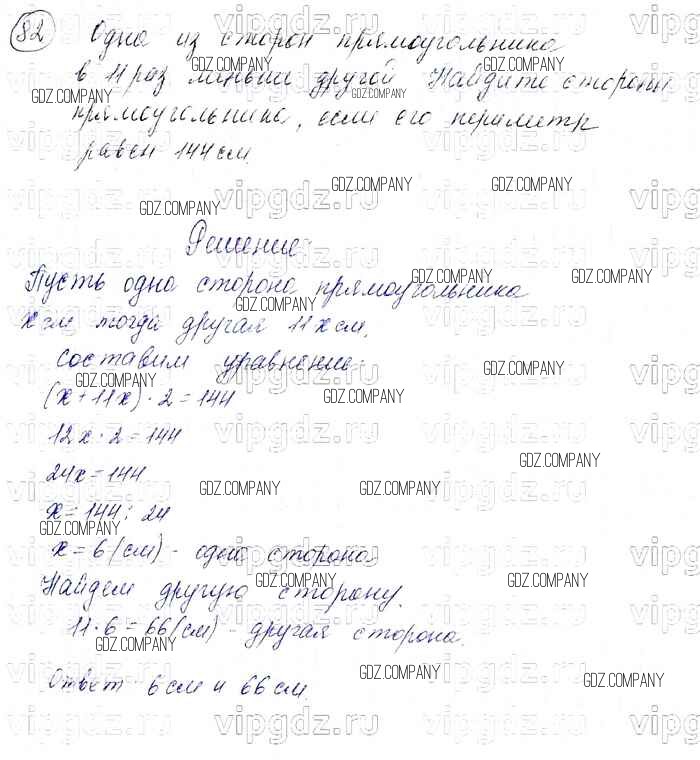 82 Одна из сторон прямоугольника
в 11 раз меньше другой Найдите стороны
прямоугольника, если его периметр
равен 144 см.
Решение:
Пусть одна сторона прямоугольника
х см тогда другая 11х см.
составим уравнение:
(х + 11х) · 2 = 144
12х · 2 = 144
24х = 144
х = 144 : 24
х = 6 (см) - одна сторона.
Найдем другую сторону.
11 · 6 = 66 (см) - другая сторона.
Ответ 6 см и 66 см.
vipgdz.ru
GDZ.COMPANY